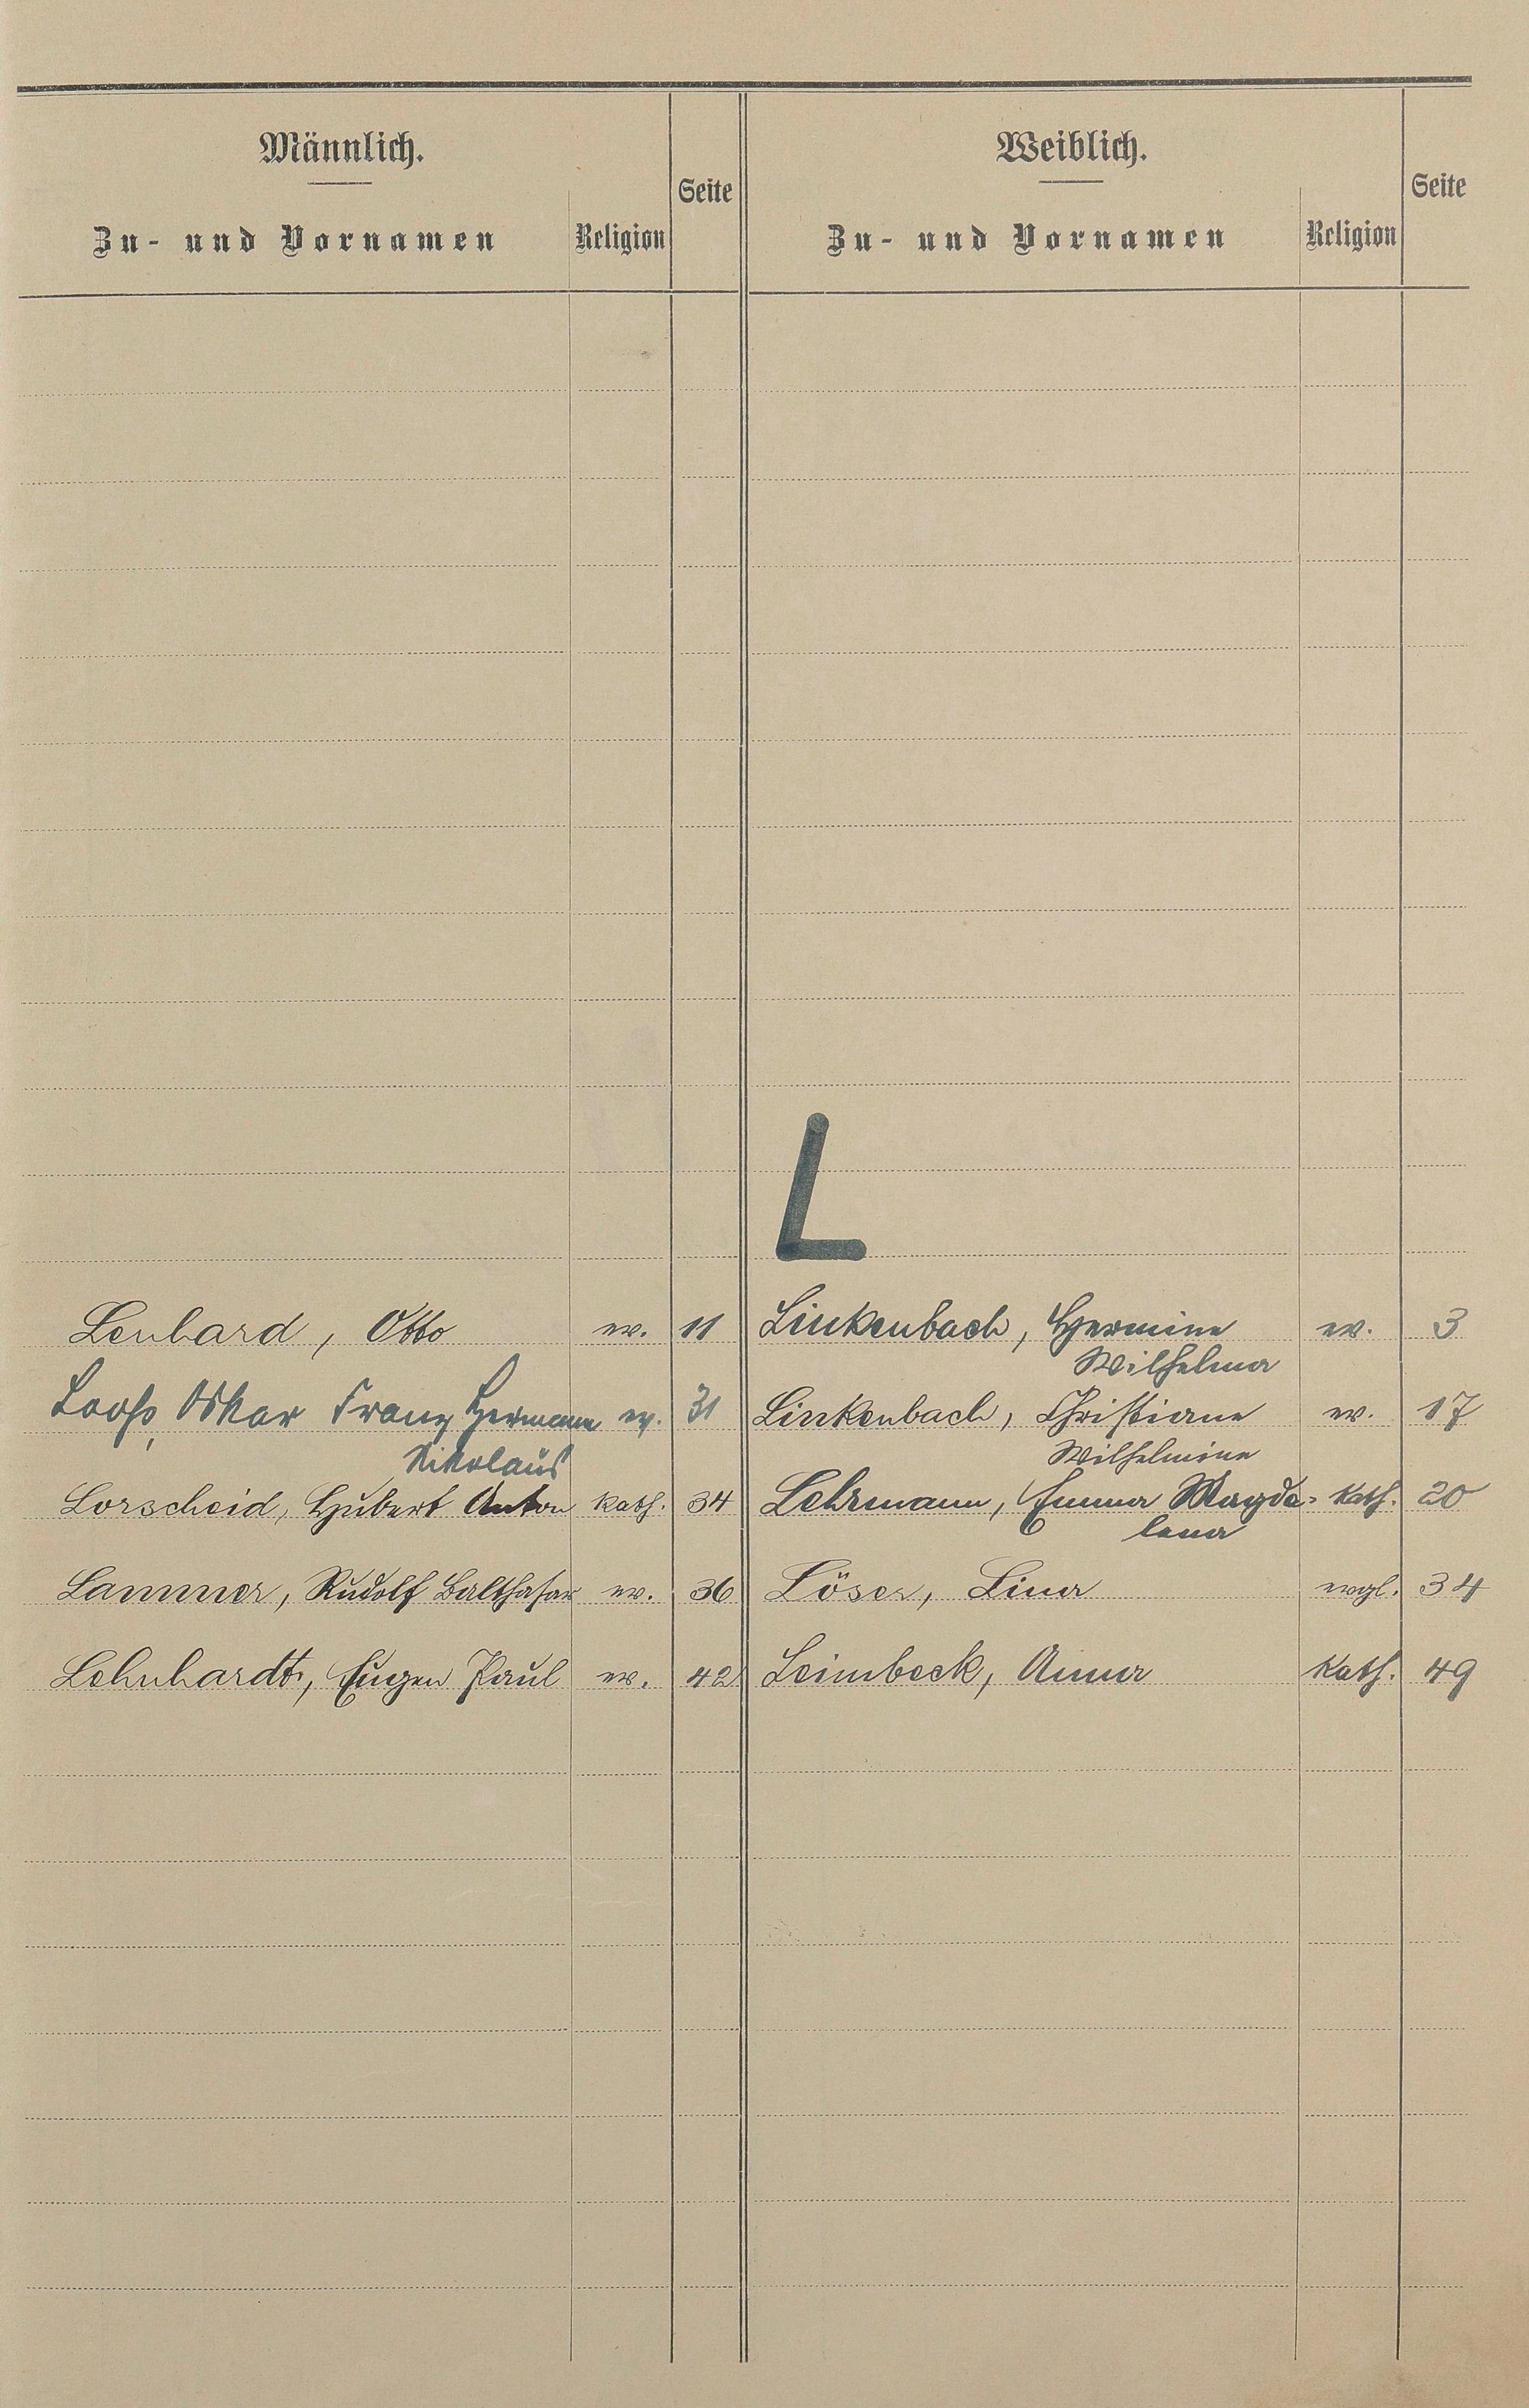 Männlich.
Zu- und Vornamen
Religion
Seite
Weiblich.
Zu- und Vornamen
Religion
Seite
L
Lenhard, Otto ev. 11
Loofs, Oskar Franz Hermann ev. 31
Nikolaus
Lorscheid, Hubert Anton kath. 34
Lammer, Rudolf Balthasar ev. 36
Lehnhardt, Eugen Paul ev. 42
Linkenbach, Hermine ev. 3
Wilhelma
Linkenbach, Christiane ev. 17
Wilhelmine
Lehrmann, Emma Magda- kath. 20
lena
Löser, Lina evgl. 34
Leimbeck, Anna kath. 49